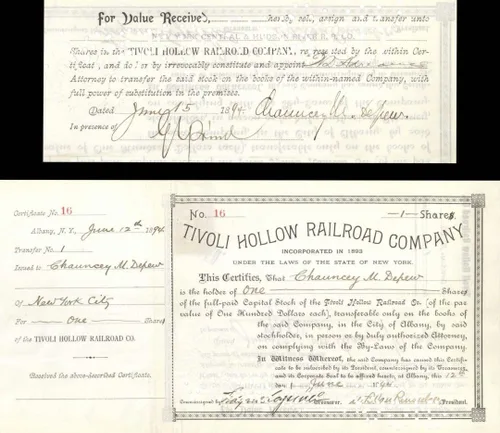 For Value Received, hereby sell, assign and transfer unto
Shares in the TIVOLI HOLLOW RAILROAD COMPANY, represented by the within Cer-
tificate, and do hereby irrevocably constitute and appoint
Attorney to transfer the said stock on the books of the within-named Company, with
full power of substitution in the premises.
Dated June 15 1894. Chauncey M. Depew.
In presence of
Certificate No. 16
Albany, N.Y., June 12th 1894
Transfer No. 1
Issued to Chauncey M. Depew
Of New York City
For One Shares
of the TIVOLI HOLLOW RAILROAD CO.
Received the above-described Certificate.
No. 16 1 Shares
TIVOLI HOLLOW RAILROAD COMPANY
INCORPORATED IN 1893
UNDER THE LAWS OF THE STATE OF NEW YORK.
This Certifies, That Chauncey M. Depew
is the holder of One Shares
of the full-paid Capital Stock of the Tivoli Hollow Railroad Co. (of the par
value of One Hundred Dollars each), transferable only on the books of
the said Company, in the City of Albany, by said
stockholder, in person or by duly authorized Attorney,
on complying with the By-Laws of the Company.
In Witness Whereof, the said Company has caused this Certifi-
cate to be subscribed by its President, countersigned by its Treasurer,
and its Corporate Seal to be affixed hereto, at Albany, this 12th
day of June 1894
Countersigned Treasurer. President.